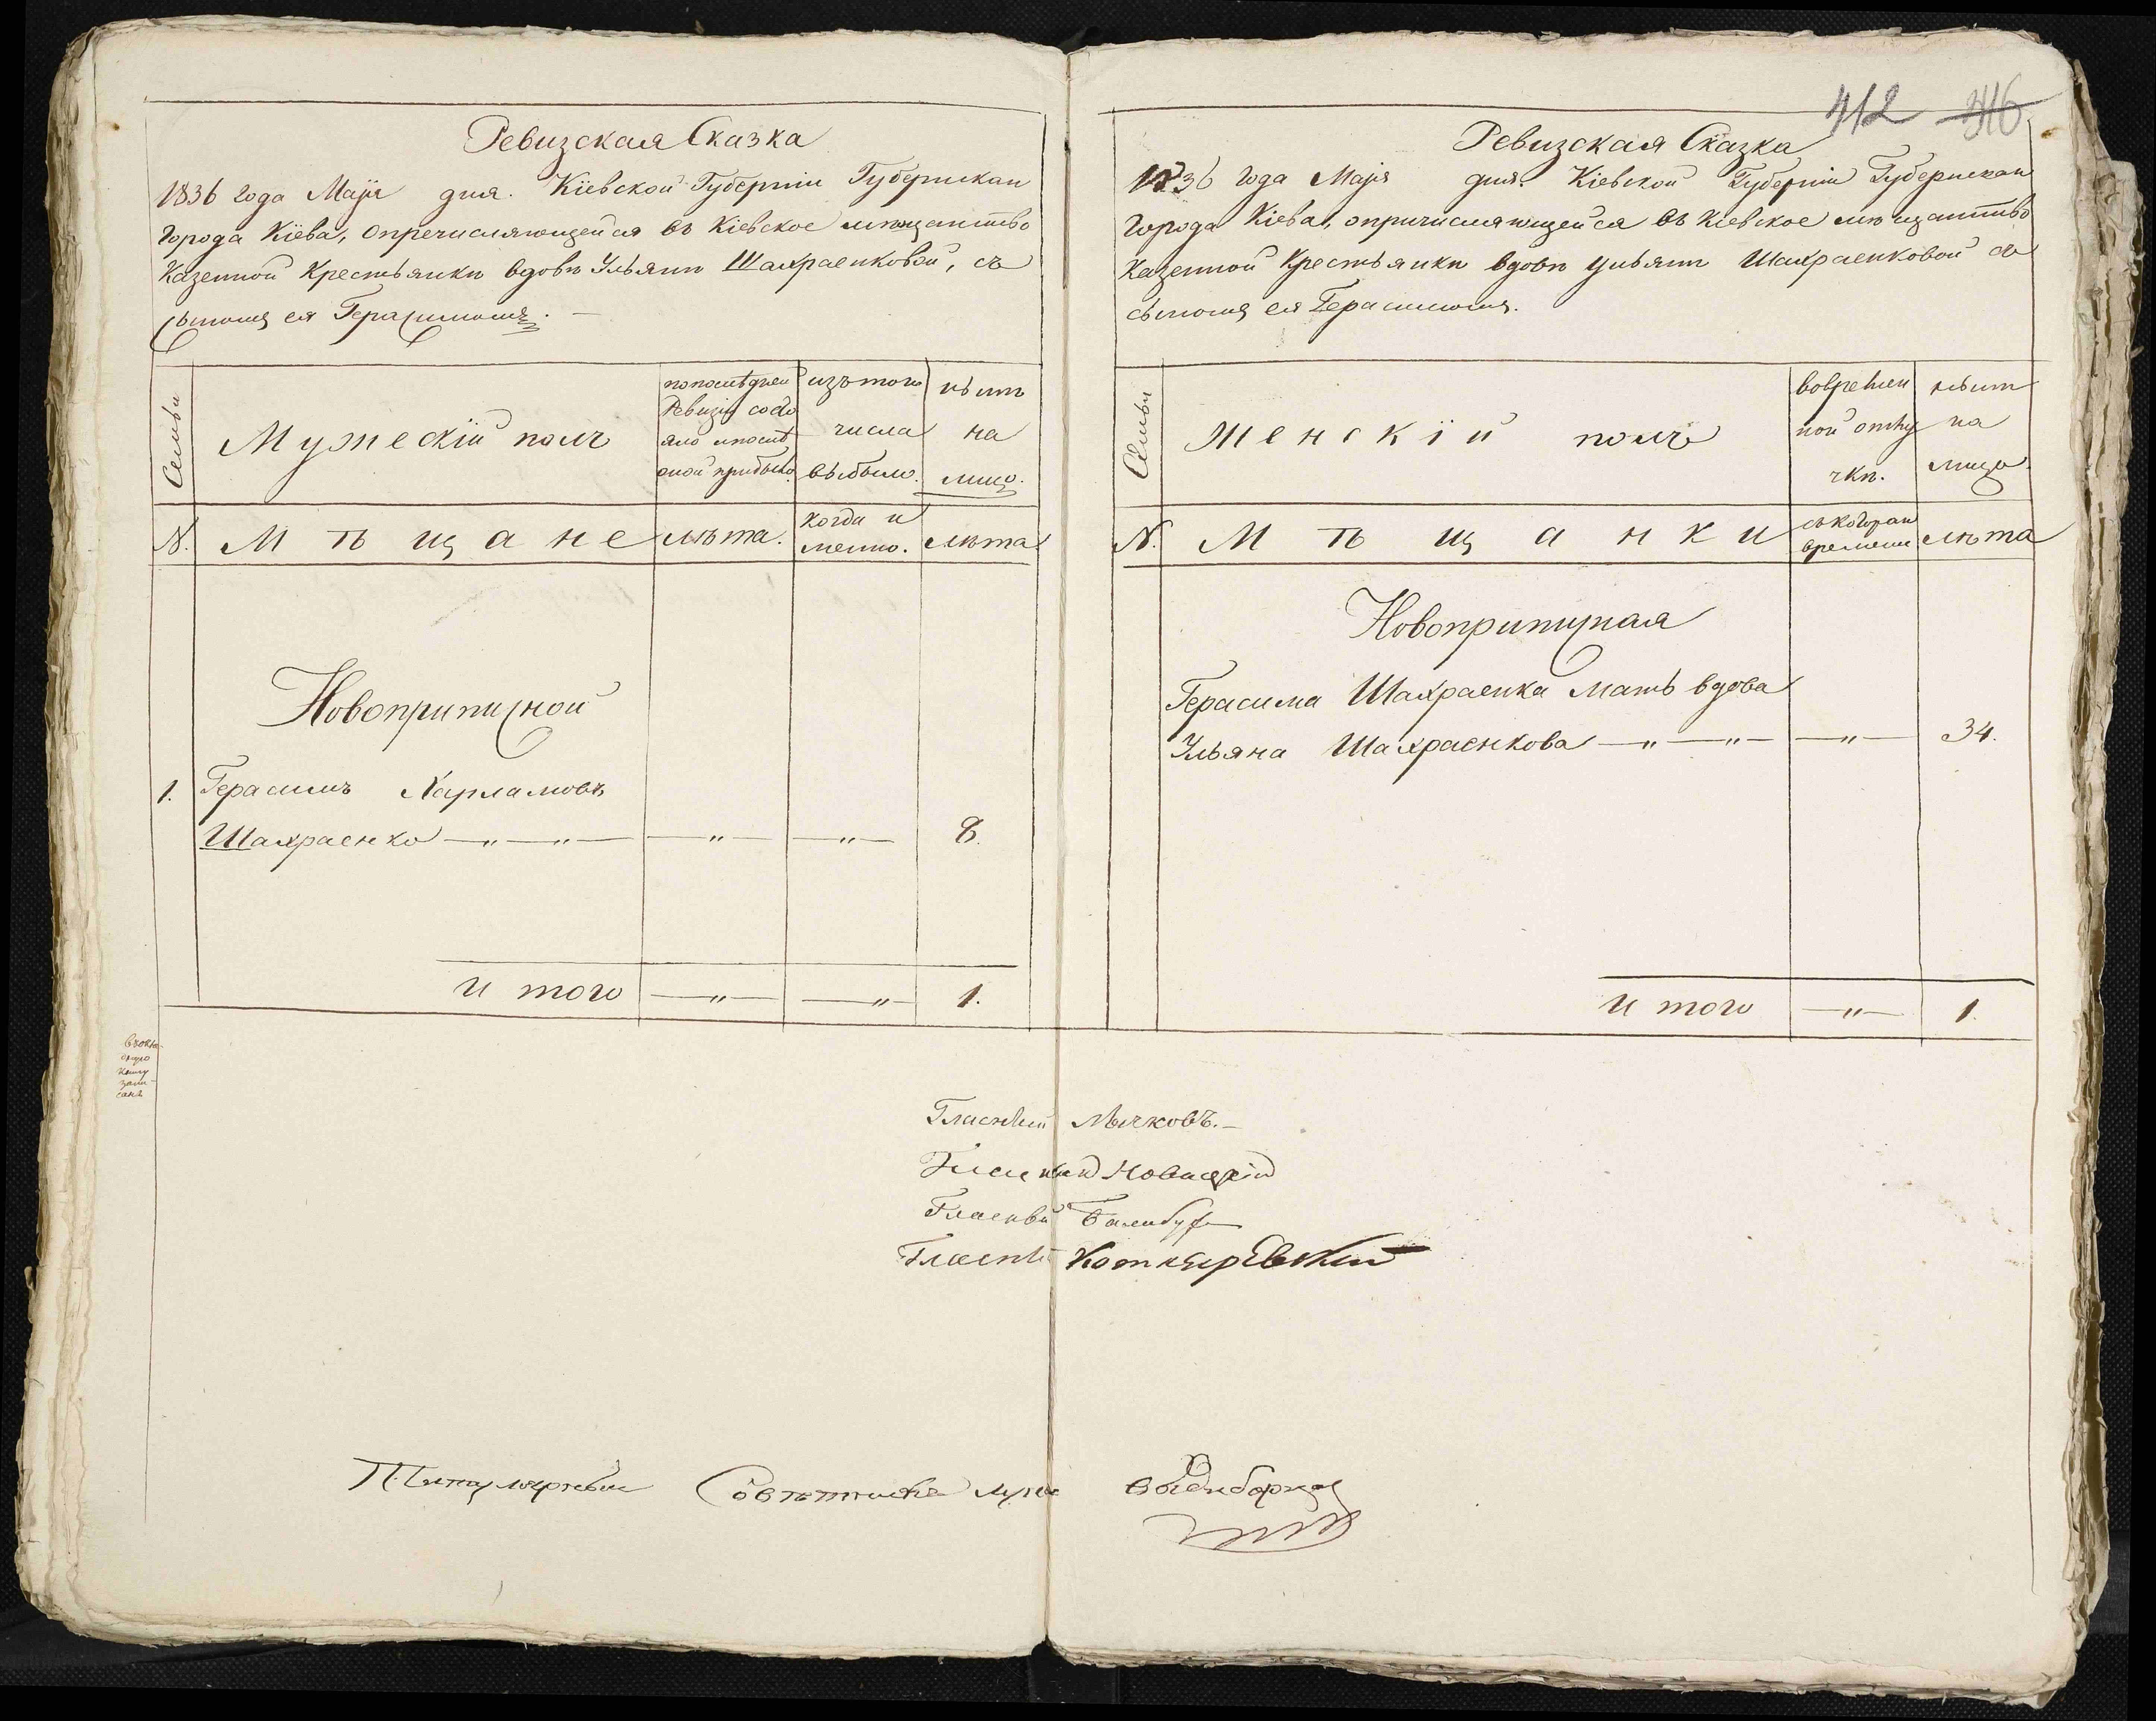 Ревизская Сказка
1836 года Маія дня. Кіевской Губерніи Губернскаго
города Кіева, опричисляющейся въ Кіевское мѣщанство
Казенной Крестьянки вдовѣ Ульянѣ Шахраенковой, съ
сыномъ ея Герасимомъ.
Семьи
Мужескій полъ
по последней
Ревизіи состо
яло и после
оной прибыло.
изъ того
числа
выбыло.
нынѣ
на
лицо.
№.
Мѣщане
лѣта.
когда и
менно.
лѣта
Новоприписной
1. Герасимъ Харламовъ
Шахраенко —"—"— —"— —"— 8.
и того —"— —"— 1.
въ
книгу
запи-
санъ
412 416
Ревизская Сказка
1836 года Маія дня. Кіевской Губерніи Губернскаго
города Кіева, опричисляющейся въ Кіевское мѣщантво
Казенной Крестьянки вдовѣ Ульянѣ Шахраенковой съ
сыномъ ея Герасимомъ.
Семьи
Женскій полъ
во времен
ной отлу
чкѣ.
нынѣ
на
лицо
№.
Мѣщанки
съ котораго
времени
лѣта
Новоприписная
Герасима Шахраенка мать вдова
Ульяна Шахраенкова —"—"— —"— 34.
и того —"— 1.
Гласный Мычковъ.—
Гласный Новицкій
Гласный Балабуха
Гласный Котляревскій
Титулярный Советникъ